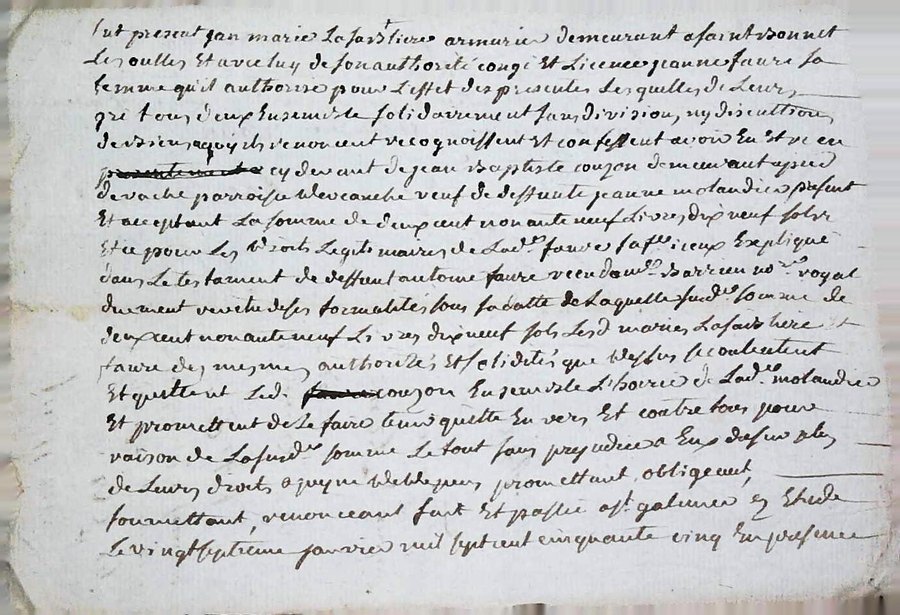 fut present jan marie Lafaistiere armurier demeurant a saint Bonnet
Les oulles Et avec luy de son authorité congé Et Licence jeanne faure sa
femme qu'il authorise pour L'effet des presentes Lesquelles de Leurs
gré tous deux Ensemble solidairement sans division ny discution
de biens a quoy ils renoncent recognoissent Et confessent avoir Eu Et receu
cy devant de jean Baptiste couzon demeurant
de vache parroisse veuf de deffunte jeanne molandier present
Et acceptant La somme de deux cent nonante neuf Livres dix neuf sols
Et ce pour Les droits Legitimaires de Lad.e faure sa f.e iceux Expliqué
dans Le testament de deffunt antoine faure receu dam.e Barrieu no.re royal
duement revetu de ses formalités sous sa datte de Laquelle susd.e somme de
deux cent nonante neuf Livres dix neuf sols Lesd mariés Lafaistiere Et
faure des mesmes authorités Et solidités que dessus se contentent
Et quittent Led. couzon Ensemble L'hoirie de Lad.e molandier
Et promettent de Le faire tenir quitte Envers Et contre tous pour
raison de La susd.e somme Le tout sans prejudice a Eux du surplus
de Leurs droits a peyne de depens promettant, obligeant,
soumettant, renonceant fait Et passé a s.t galmier Etude
Le vingt septieme janvier mil sept cent cinquante cinq En presence